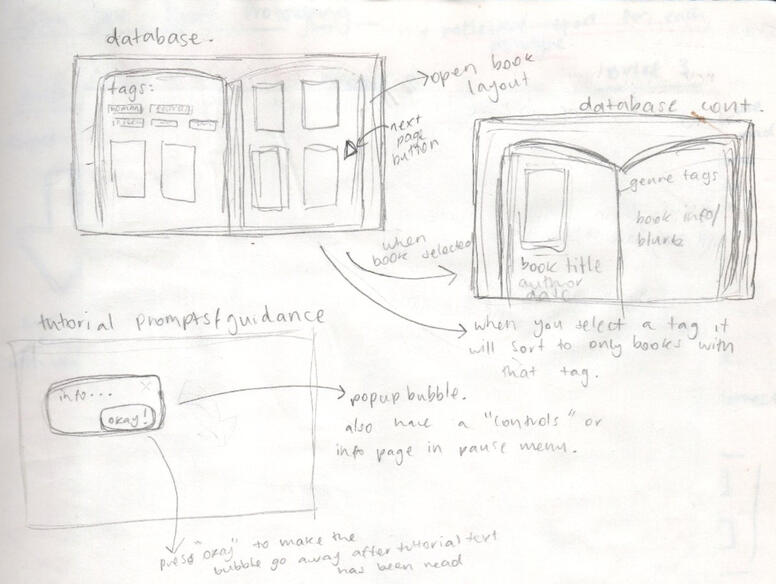 database.
tags:
open book
layout
next
page
button
when
book selected
database cont.
genre tags
book info/
blurb
book title
author
date
when you select a tag it
will sort to only books with
that tag.
tutorial prompts/guidance
info...
okay!
popup bubble.
also have a "controls" or
info page in pause menu.
press "okay" to make the
bubble go away after tutorial text
has been read